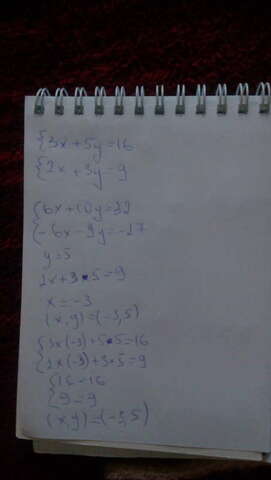 {3x+5y=16
{2x+3y=9
{6x+10y=32
{-6x-9y=-27
y=5
2x+3•5=9
x=-3
(x,y)=(-3,5)
{3x(-3)+5•5=16
{2x(-3)+3×5=9
{16=16
{9=9
(x,y)=(-3,5)